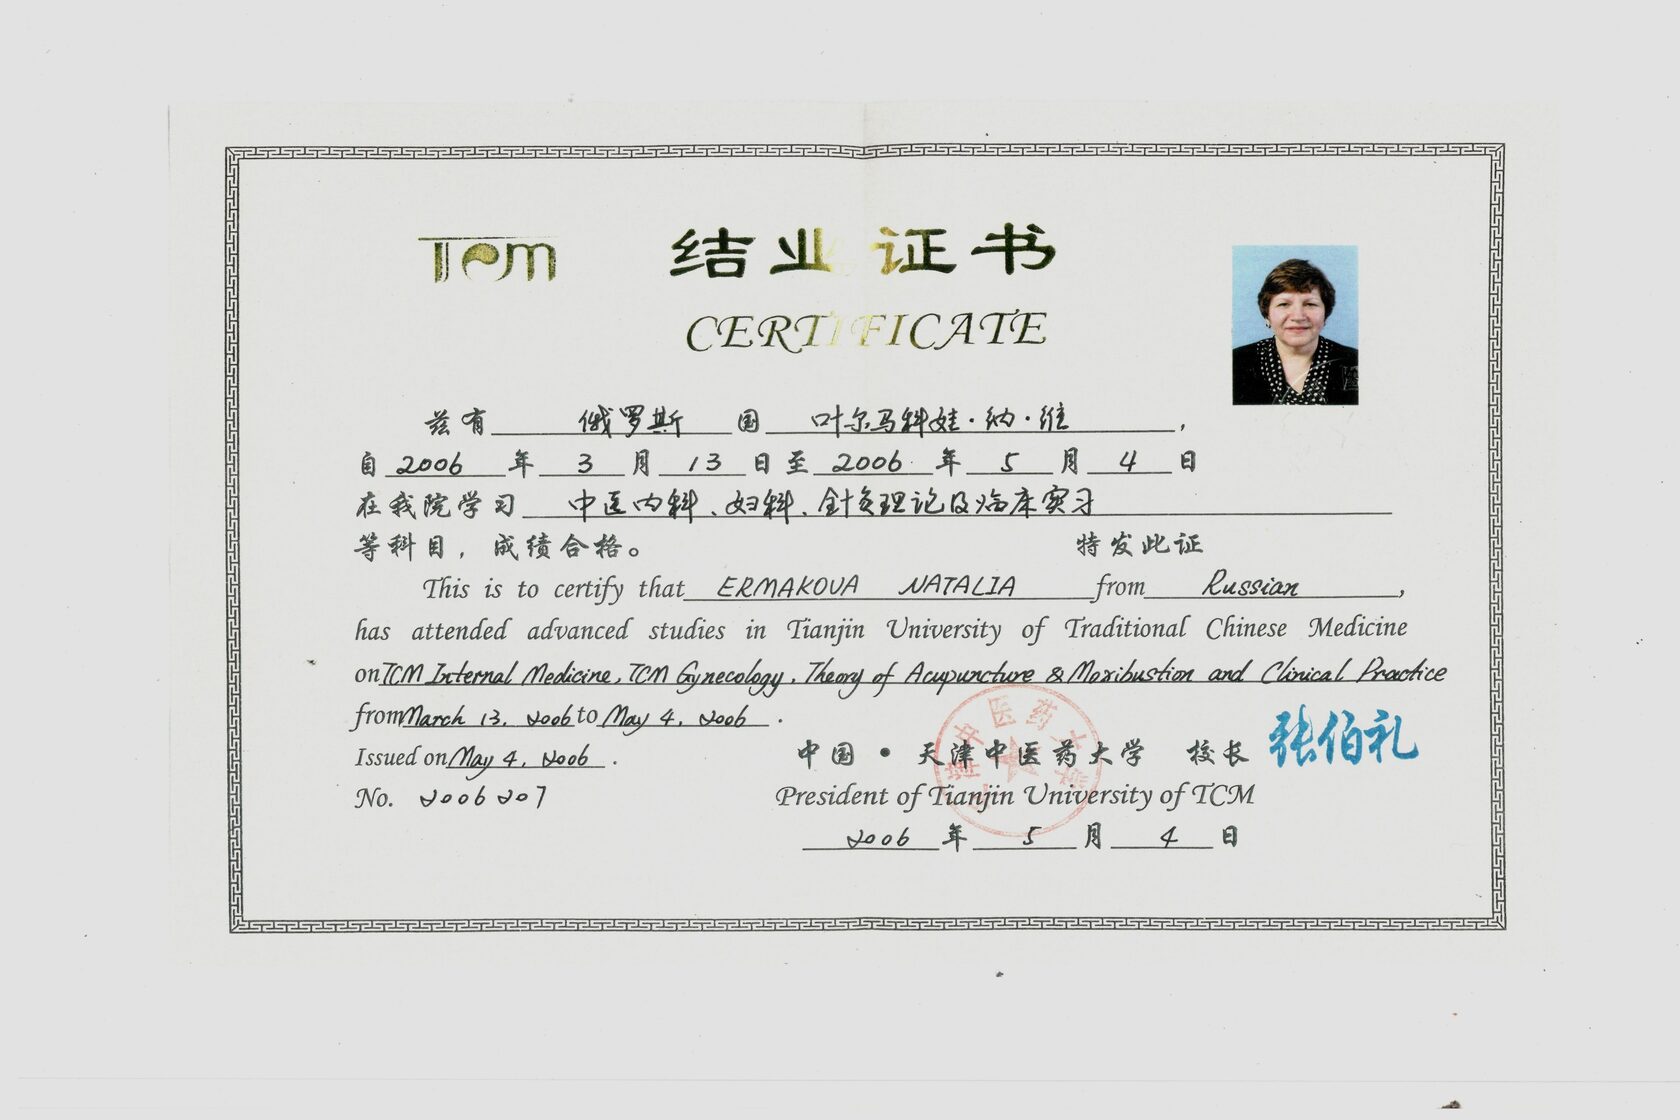 TCM
结业证书
CERTIFICATE
兹有 俄罗斯 国 叶尔马科娃·纳·维 ,
自 2006 年 3 月 13 日至 2006 年 5 月 4 日
在我院学习 中医内科、妇科、针灸理论及临床实习
等科目，成绩合格。 特发此证
This is to certify that ERMAKOVA NATALIA from Russian ,
has attended advanced studies in Tianjin University of Traditional Chinese Medicine
on TCM Internal Medicine, TCM Gynecology, Theory of Acupuncture & Moxibustion and Clinical Practice
from March 13, 2006 to May 4, 2006 .
Issued on May 4, 2006 .
中国·天津中医药大学 校长 张伯礼
No. 2006207
President of Tianjin University of TCM
2006 年 5 月 4 日